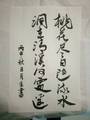 桃花尽日随流水
洞在清溪何處邊
丙申秋月書